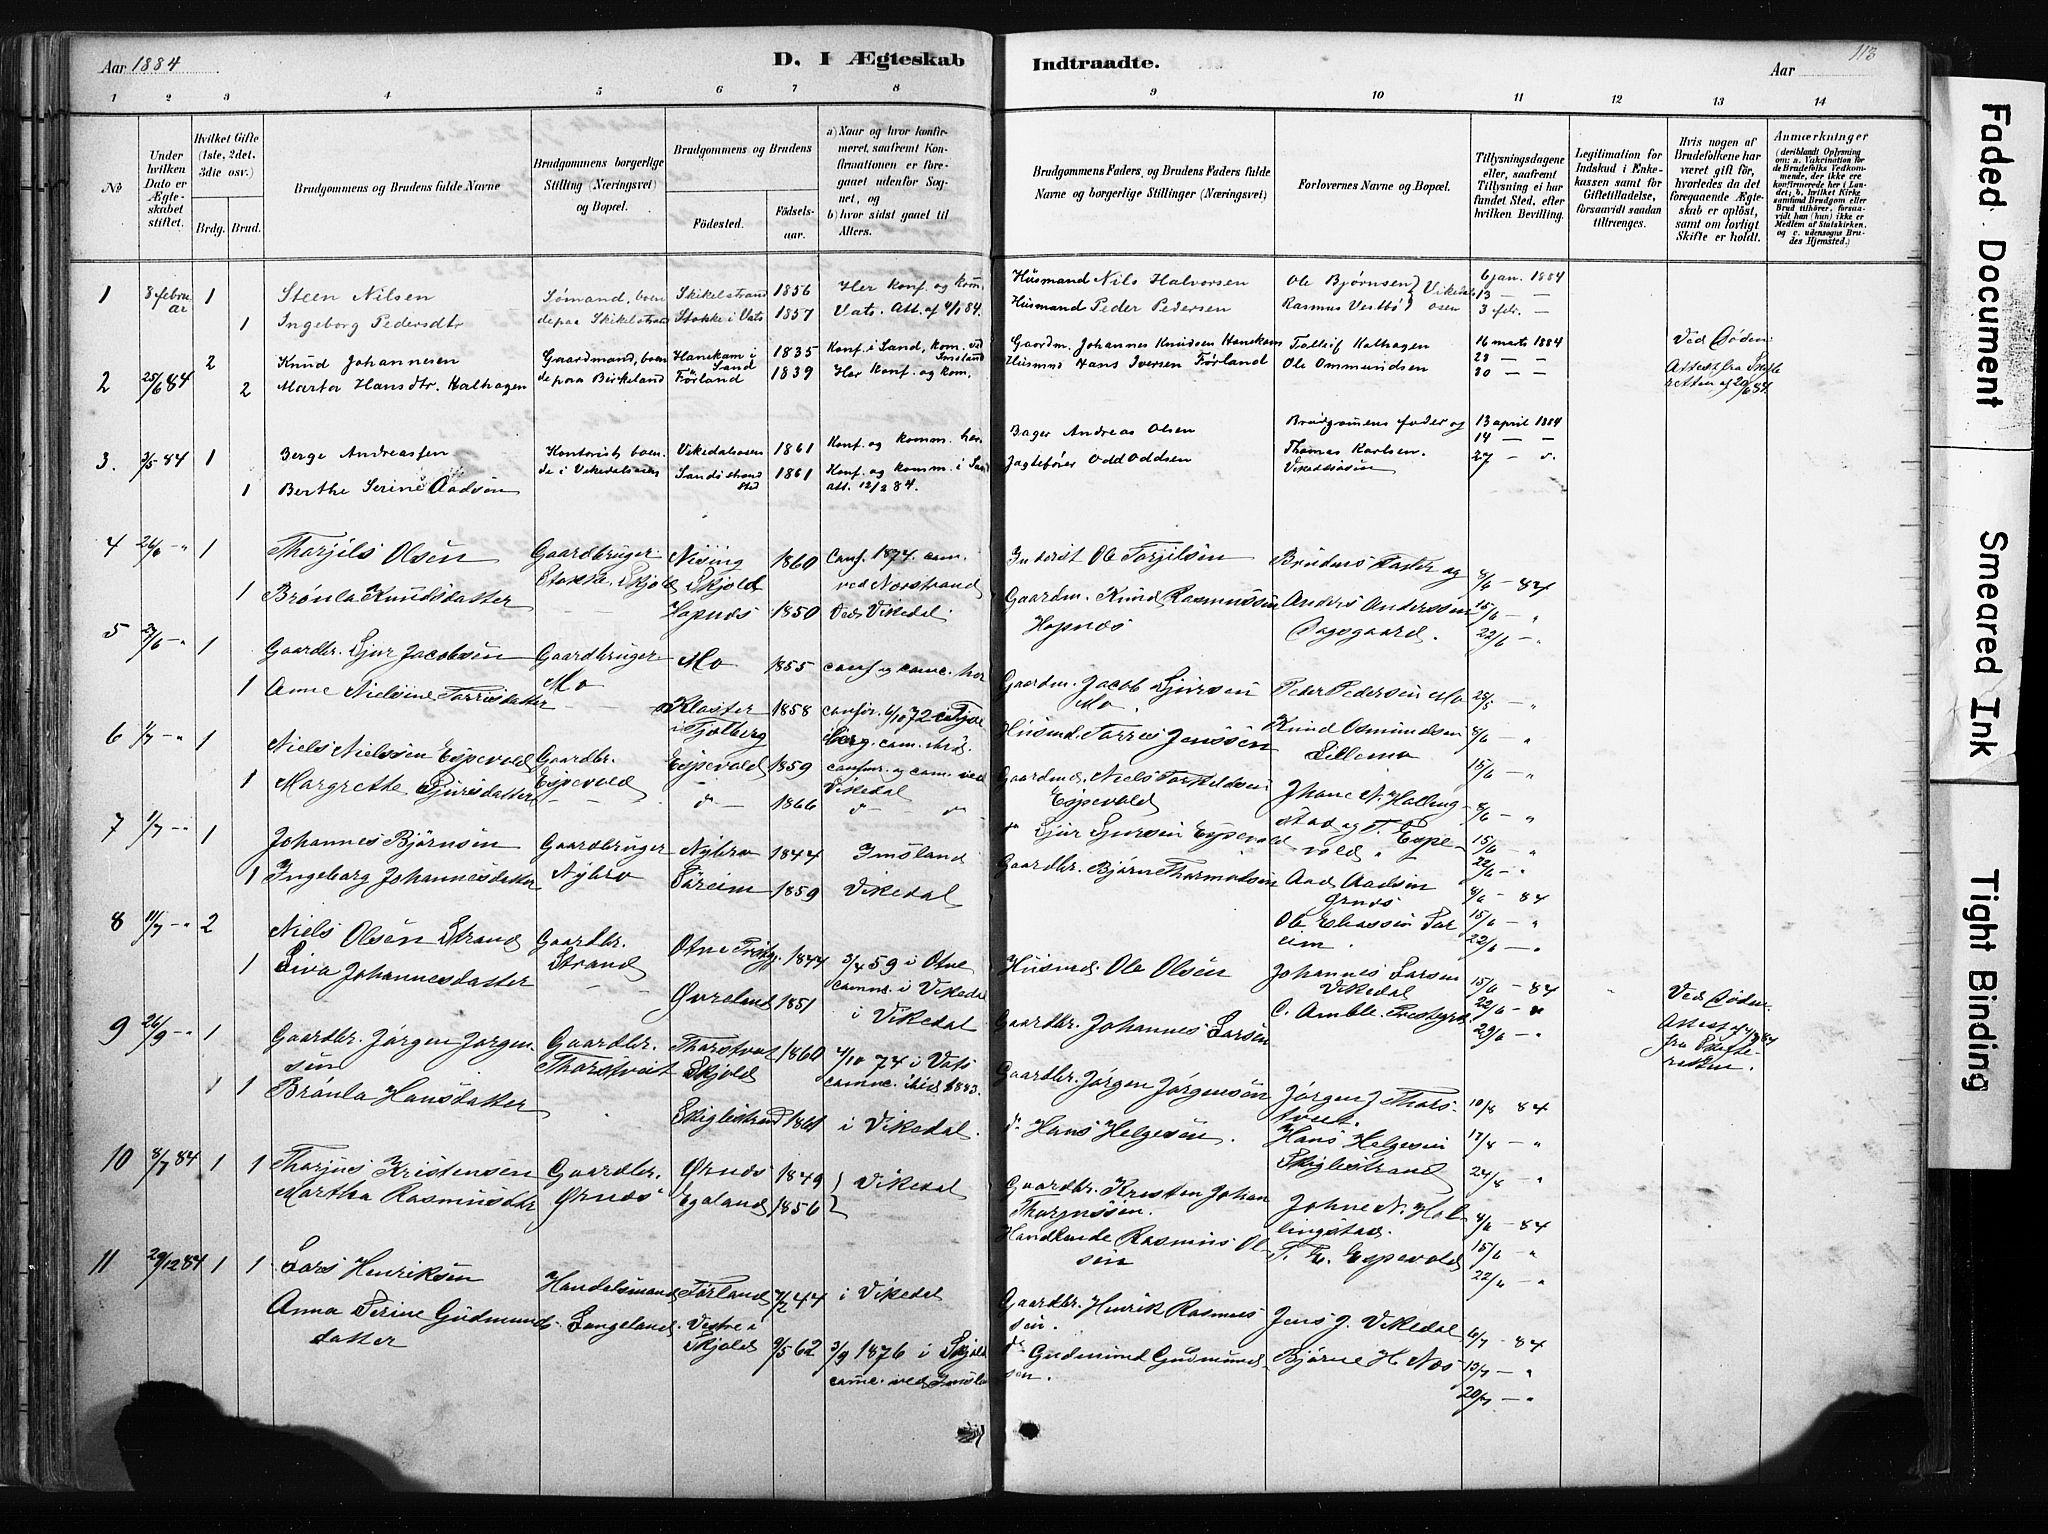 Aar 1884
D. I Ægteskab
Indtraadte.
Aar
113
1 2 3 4 5 6 7 8
9 10 11 12 13 14
No
Under hvilken Dato er Ægteskabet stiftet.
Hvilket Gifte (1ste, 2det, 3die osv.)
Brdg. Brud.
Brudgommens og Brudens fulde Navne
Brudgommens borgerlige Stilling (Næringsvei) og Bopæl.
Brudgommens og Brudens
Födested.
Födselsaar.
a) Naar og hvor konfirmeret, saafremt Konfirmationen er foregaaet udenfor Sognet, og
b) hvor sidst gaaet til Alters.
Brudgommens Faders, og Brudens Faders fulde Navne og borgerlige Stillinger (Næringsvei)
Forlovernes Navne og Bopæl.
Tillysningsdagene eller, saafremt Tillysning ei har fundet Sted, efter hvilken Bevilling.
Legitimation for Indskud i Enkekassen samt for Giftetilladelse, forsaavidt saadan tiltrænges.
Hvis nogen af Brudefolkene har været gift för, hvorledes da det foregaaende Ægteskab er oplöst, samt om lovligt Skifte er holdt.
Anmærkninger
(deriblandt Oplysning om: a. Vakcination for de Brudefolks Vedkommende, der ikke ere konfirmerede her i Landet; b, hvilket Kirkesamfund Brudgom eller Brud tilhörer, forsaavidt han (hun) ikke er Medlem af Statskirken. og c. udensogns Brudes Hjemsted.)
1 8 februar 1 Steen Nilsen Sømand, boen Skikelstrand 1856 Her konf. og kom. Husmand Nils Halvorsen Ole Bjørnsen 6 jan. 1884
1 Ingeborg Pedersdtr de paa Skikelstrand Stokke i Vats 1857 Vats. Att. af 4/1 84. Husmand Peder Pedersen Rasmus Vestbø Vikedalsosen 13 — —
3 febr. —
2 25/6 84 2 Knud Johannesen Gaardmand, boen Hanekam i Sand 1835 Konf. i Sand, kom. ved Imsland Gaardm. Johannes Knudsen Hanekam Tolleif Kalhagen 16 marts 1884 Ved Døden
2 Marta Hansdtr. Kalhagen de paa Birkeland Førland 1839 Her konf. og kom. Husmnd Hans Iversen Førland Ole Ommundsen 23 — —
30 — —
Attest fra Skifteretten af 20/6 84.
3. 3/5 84 1 Berge Andreassen Kontorist, boen Vikedalsosen 1861 Konf. og komm. her Bager Andreas Olsen Brudgommens fader og 13 april 1884
de i Vikedalsosen Sandsstrandsted 1861 Konf. og komm. i Sand att. 12/2 84. Jagtefører Odd Oddsen Thomas Karlsen. 14 — —
1 Berthe Serine Aadsen Vikedalsosen 27 —
4 26/6 — " 1 Thorjils Olsen Gaardbruger Nising 1860 Conf. 1874. com. Inderst Ole Torjilsen Brudens Fader og 8/6 — 84
Stokka, Skjold Skjold ved Norstrand
1 Brønla Knudsdatter — — Hopnæs 1850 Ved Vikedal. Gaardm. Knud Rasmussen Hopnæs Anders Anderssen 15/6 — "
22/6 — "
5 27/6 — " 1 Gaardbr. Sjur Jacobsen Gaardbruger Mo 1855 conf. og comc. her Gaardm. Jacob Sjursen Mo. Peder Pedersen Mo 25/5 — "
1 Anne Nielsine Torrisdatter Mo Kloster i Fjelberg 1858 confir. 6/10 72 i Fjelberg. com. ibid. Husmd. Torris Jenssen Knud Osmundsen Lillemo 8/6 — "
15/6 — "
6 1/7 — " 1 Niels Nielssen Espevold Gaardbr. Espevold 1859 confir. og com. ved Vikedal Gaardmd. Niels Torkildsen Espevold Johane N. Hallingstad og T. Espevold 8/6 — "
1 Margrethe Sjursdatter Espevold — " — 1866 " " do Sjur Sjursen Espevold 15/6 — "
22/6 — "
7 1/7 — " 1 Johannes Bjørnsen Gaardbruger Nybro 1844 Imsland Gaardbr. Bjørn Thormodsen Aad Aadsen 8/6 — 84
1 Ingeborg Johannesdatter Nybro Søreim 1859 Vikedal Ole Eliassen Søreim. 15/6 — "
22/6 — "
8 11/7 — " 2 Niels Olsen Strand Gaardbr. Otne Præstgj. 1844 3/4 59 i Otne Husmd. Ole Olsen Johannes Larsen Vikedal 15/6 — 84 Ved Døden.
1 Siva Johannesdatter Strand Øvreland 1851 comm. i Vikedal Gaardbr. Johannes Larsen C. Amble. Prestgrd. 22/6 — "
i Vikedal 29/6 — "
Attest af 4/7 84 fra Skifteretten.
9 26/9 — " 1 Gaardbr. Jørgen Jørgensen Gaardbr. Thorstveit Skjold 1860 4/10 74 i Vats Gaardbr. Jørgen Jørgensen Jørgen J. Thorstveit. 10/8 84
Thorstveit comc. ibid. 1883.
1 1 Brønla Hansdatter Skiglestrand 1861 i Vikedal. do Hans Helgesen. Hans Helgesen Skiglestrand 17/8 — "
24/8 — "
10 8/7 84 1 1 Thorjus Kristensen Gaardbr. Ørnæs 1849 Vikedal Gaardbr. Kristen Johan Thorjussen. Johne N. Hallingstad. 8/6 — 84
Martha Rasmusdtr Ørnæs Egeland 1856 Handlende Rasmus Olsen T. E. Espevold 15/6 — "
22/6 — "
11 29/12 84 1 1 Lars Henriksen Handelsmand Førland 7/2 44 i Vikedal Gaardbr. Henrik Rasmussen. Jens J. Vikedal 6/7 — 84
Anna Serine Gudmundsdatter Langeland. Vestre i Skjold 9/5 62 3/9 1876 i Skjold do Gudmund Gudmundssen. Bjørne H. Næs 13/7 — "
comc. ved Imsland 20/7 — "
Faded Document
Smeared Ink
Tight Binding